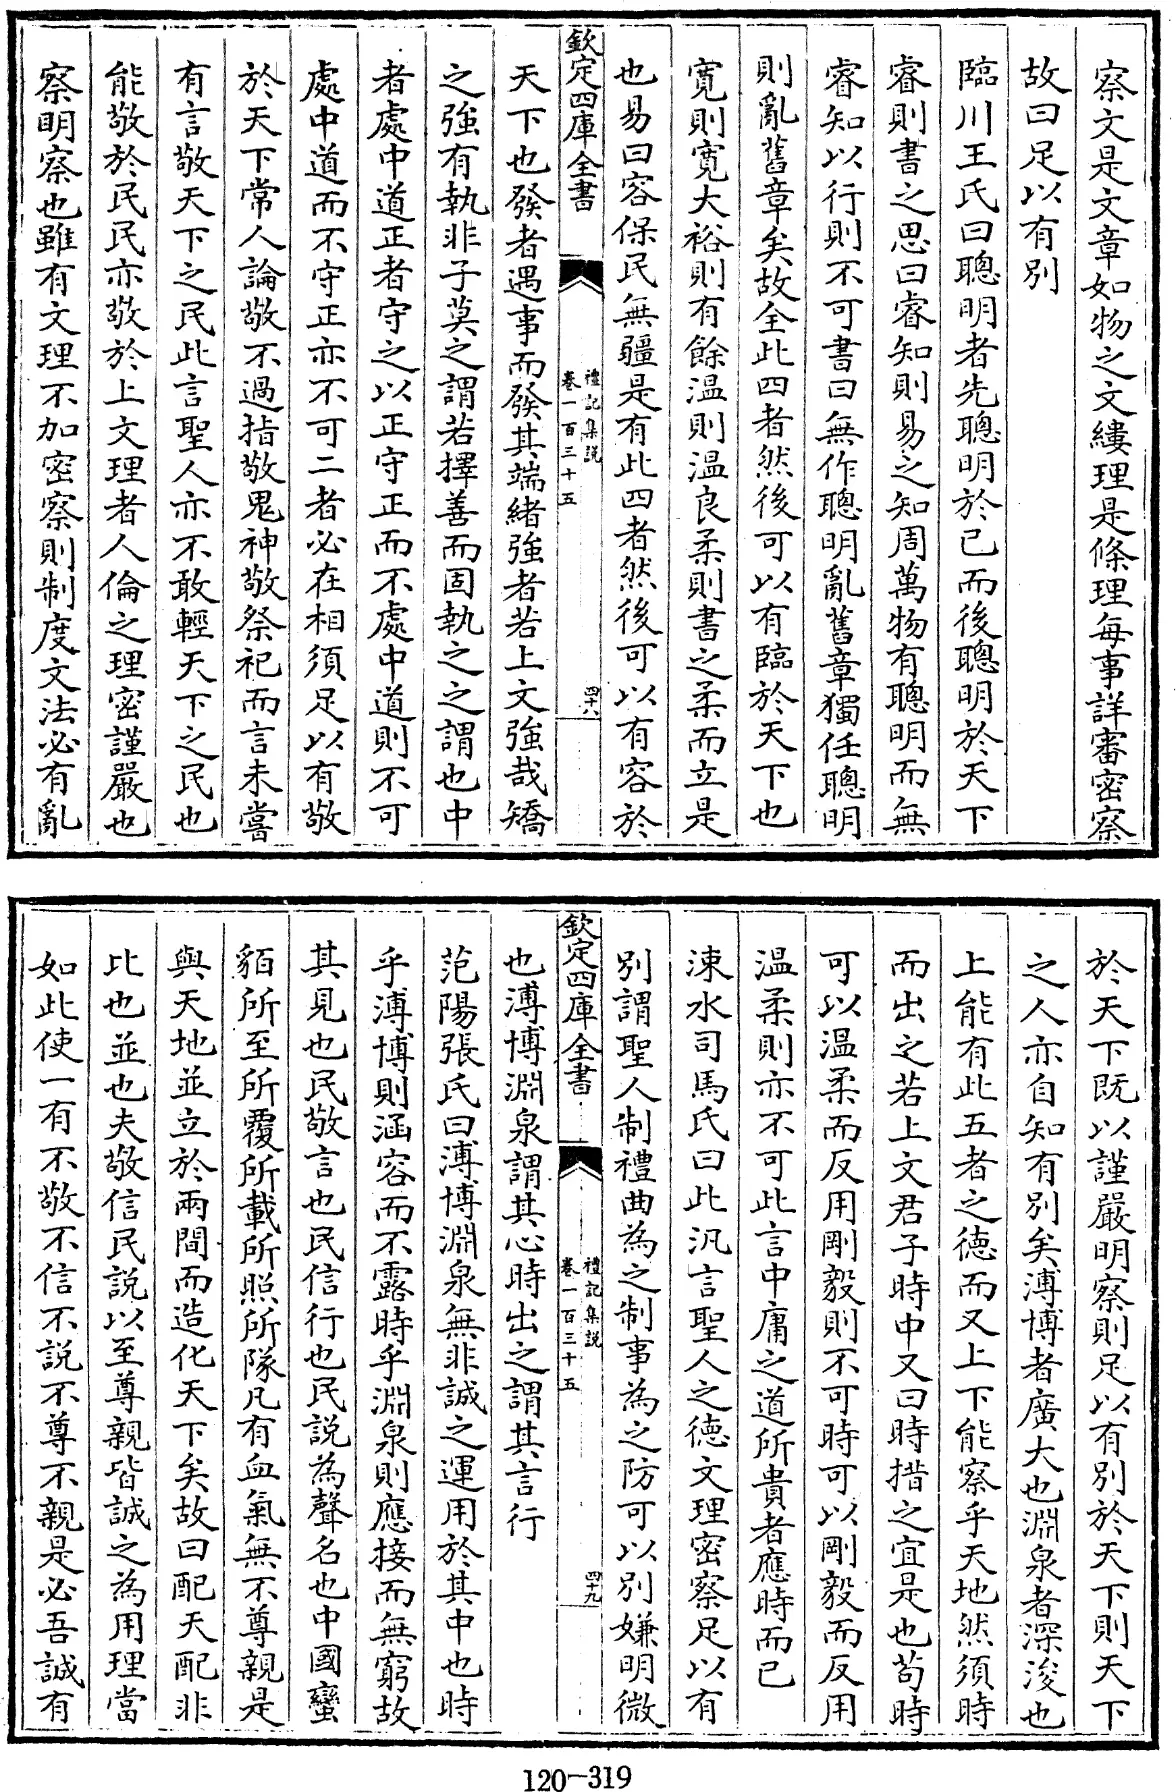 察文是文章如物之文縷理是條理每事詳審密察
故曰足以有别
臨川王氏曰聰明者先聰明於已而後聰明於天下
睿則書之思曰睿知則易之知周萬物有聰明而無
睿知以行則不可書曰無作聰明亂舊章獨任聰明
則亂舊章矣故全此四者然後可以有臨於天下也
寛則寛大裕則有餘温則温良柔則書之柔而立是
也易曰容保民無疆是有此四者然後可以有容於
欽定四庫全書
禮記集説
卷一百三十五
四十八
天下也發者遇事而發其端緒強者若上文強哉矯
之強有執非子莫之謂若擇善而固執之之謂也中
者處中道正者守之以正守正而不處中道則不可
處中道而不守正亦不可二者必在相須足以有敬
於天下常人論敬不過指敬鬼神敬祭祀而言未嘗
有言敬天下之民此言聖人亦不敢輕天下之民也
能敬於民民亦敬於上文理者人倫之理密謹嚴也
察明察也雖有文理不加密察則制度文法必有亂
於天下既以謹嚴明察則足以有别於天下則天下
之人亦自知有别矣溥博者廣大也淵泉者深浚也
上能有此五者之徳而又上下能察乎天地然須時
而出之若上文君子時中又曰時措之宜是也苟時
可以温柔而反用剛毅則不可時可以剛毅而反用
温柔則亦不可此言中庸之道所貴者應時而已
涑水司馬氏曰此汎言聖人之徳文理密察足以有
别謂聖人制禮曲為之制事為之防可以别嫌明微
欽定四庫全書
禮記集説
卷一百三十五
四十九
也溥博淵泉謂其心時出之謂其言行
范陽張氏曰溥博淵泉無非誠之運用於其中也時
乎溥博則涵容而不露時乎淵泉則應接而無窮故
其見也民敬言也民信行也民説為聲名也中國蠻
貊所至所覆所載所照所隊凡有血氣無不尊親是
與天地並立於兩間而造化天下矣故曰配天配非
比也並也夫敬信民説以至尊親皆誠之為用理當
如此使一有不敬不信不説不尊不親是必吾誠有
120-319